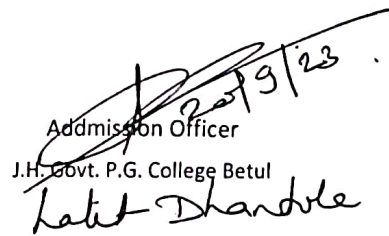 20/9/23
Addmission Officer
J.H. Govt. P.G. College Betul
Lalit Dhandole